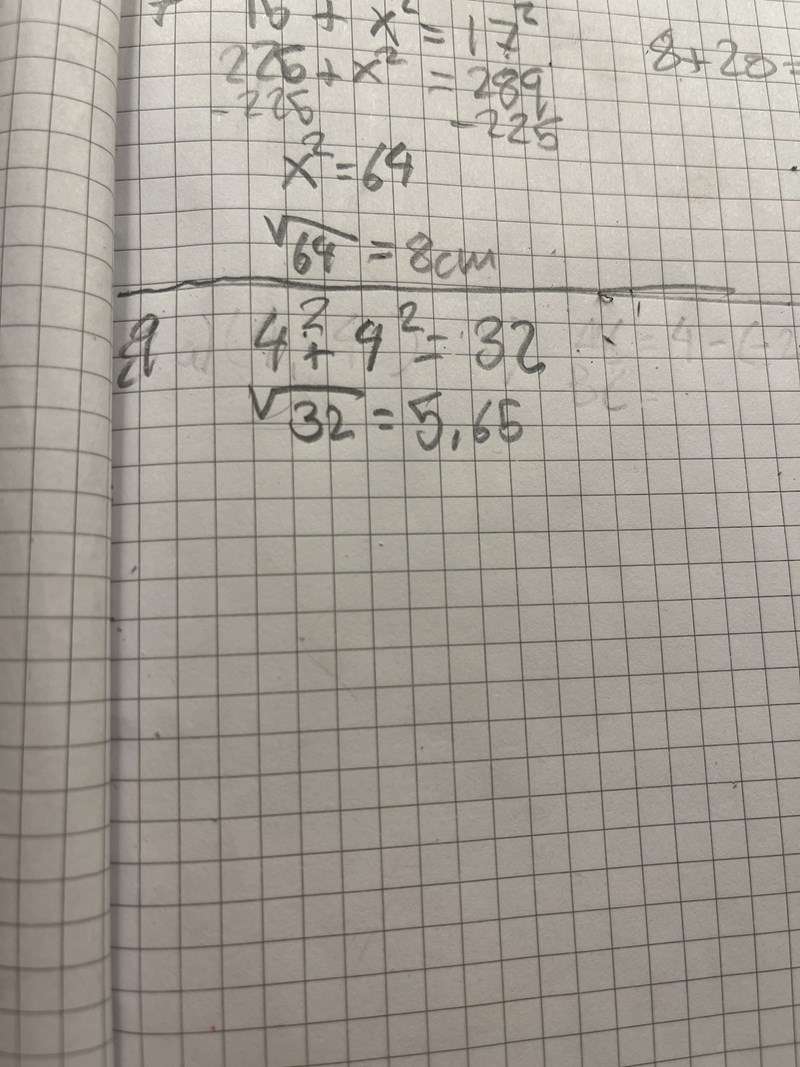 + x² = 17²
225 + x² = 289
-225 -225
x² = 64
√64 = 8cm
8+20=
4² + 4² = 32
√32 = 5,65